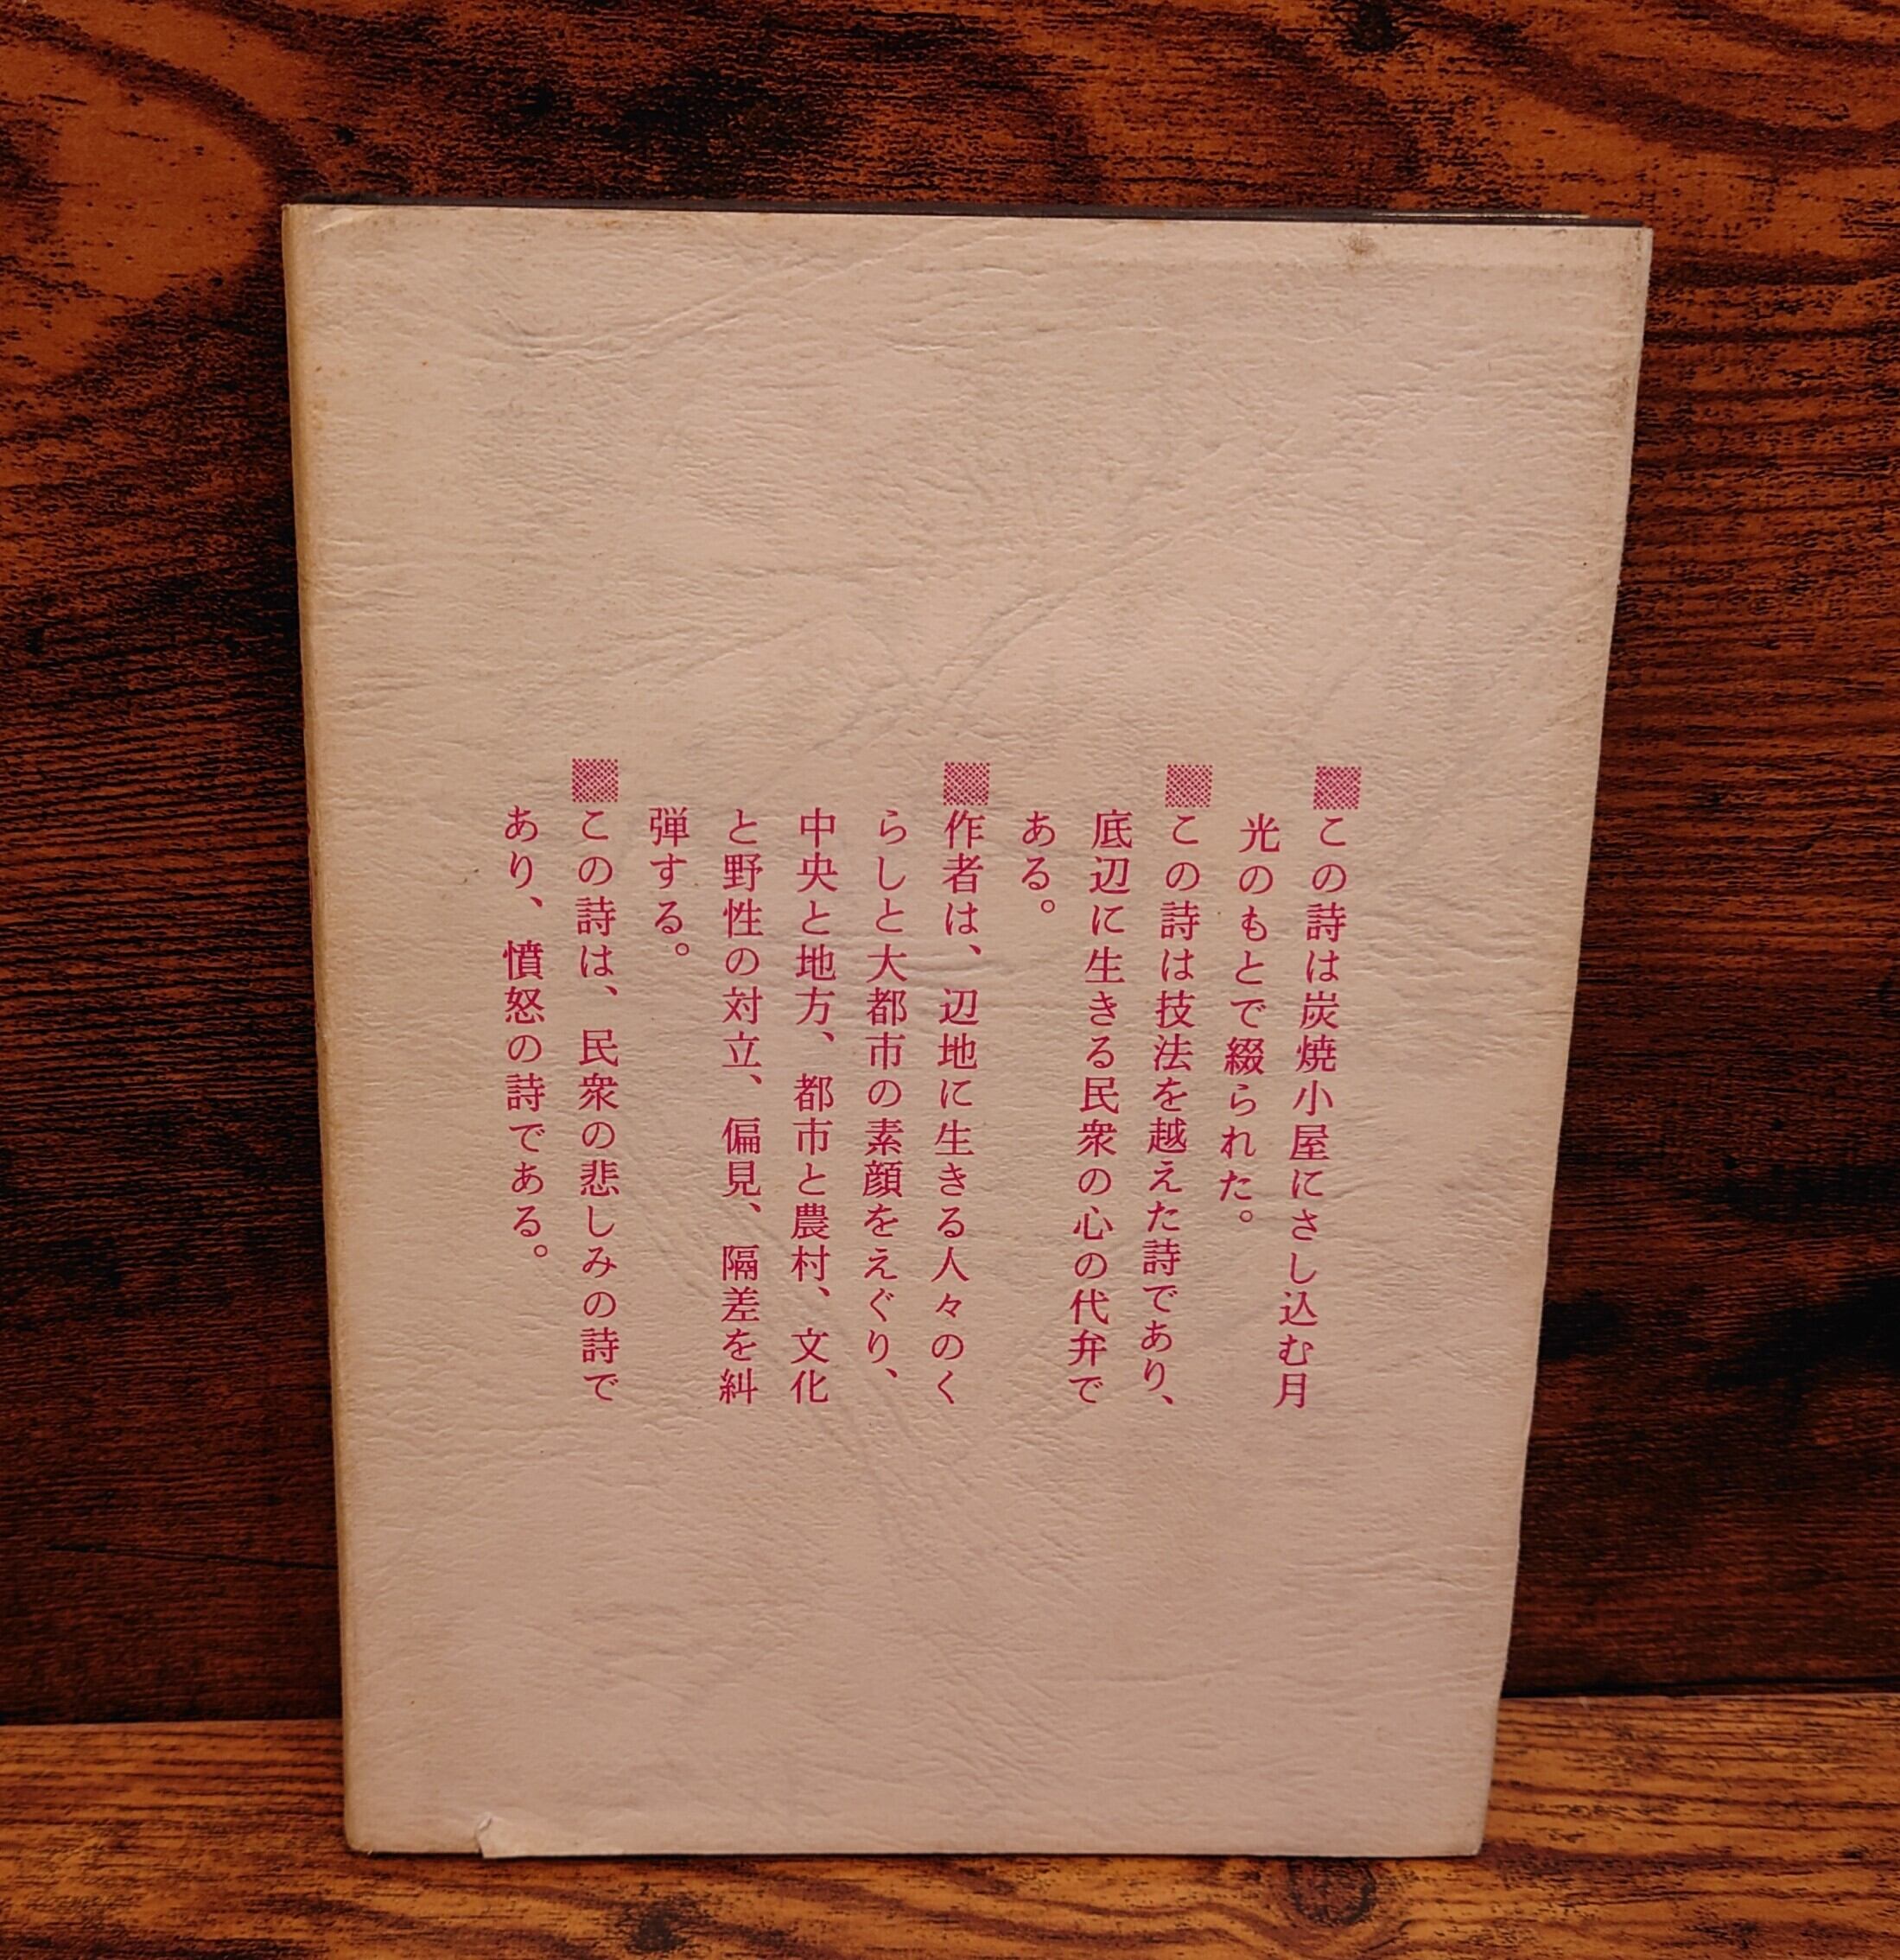 この詩は炭焼小屋にさし込む月
光のもとで綴られた。
この詩は技法を越えた詩であり、
底辺に生きる民衆の心の代弁で
ある。
作者は、辺地に生きる人々のく
らしと大都市の素顔をえぐり、
中央と地方、都市と農村、文化
と野性の対立、偏見、隔差を糾
弾する。
この詩は、民衆の悲しみの詩で
あり、憤怒の詩である。